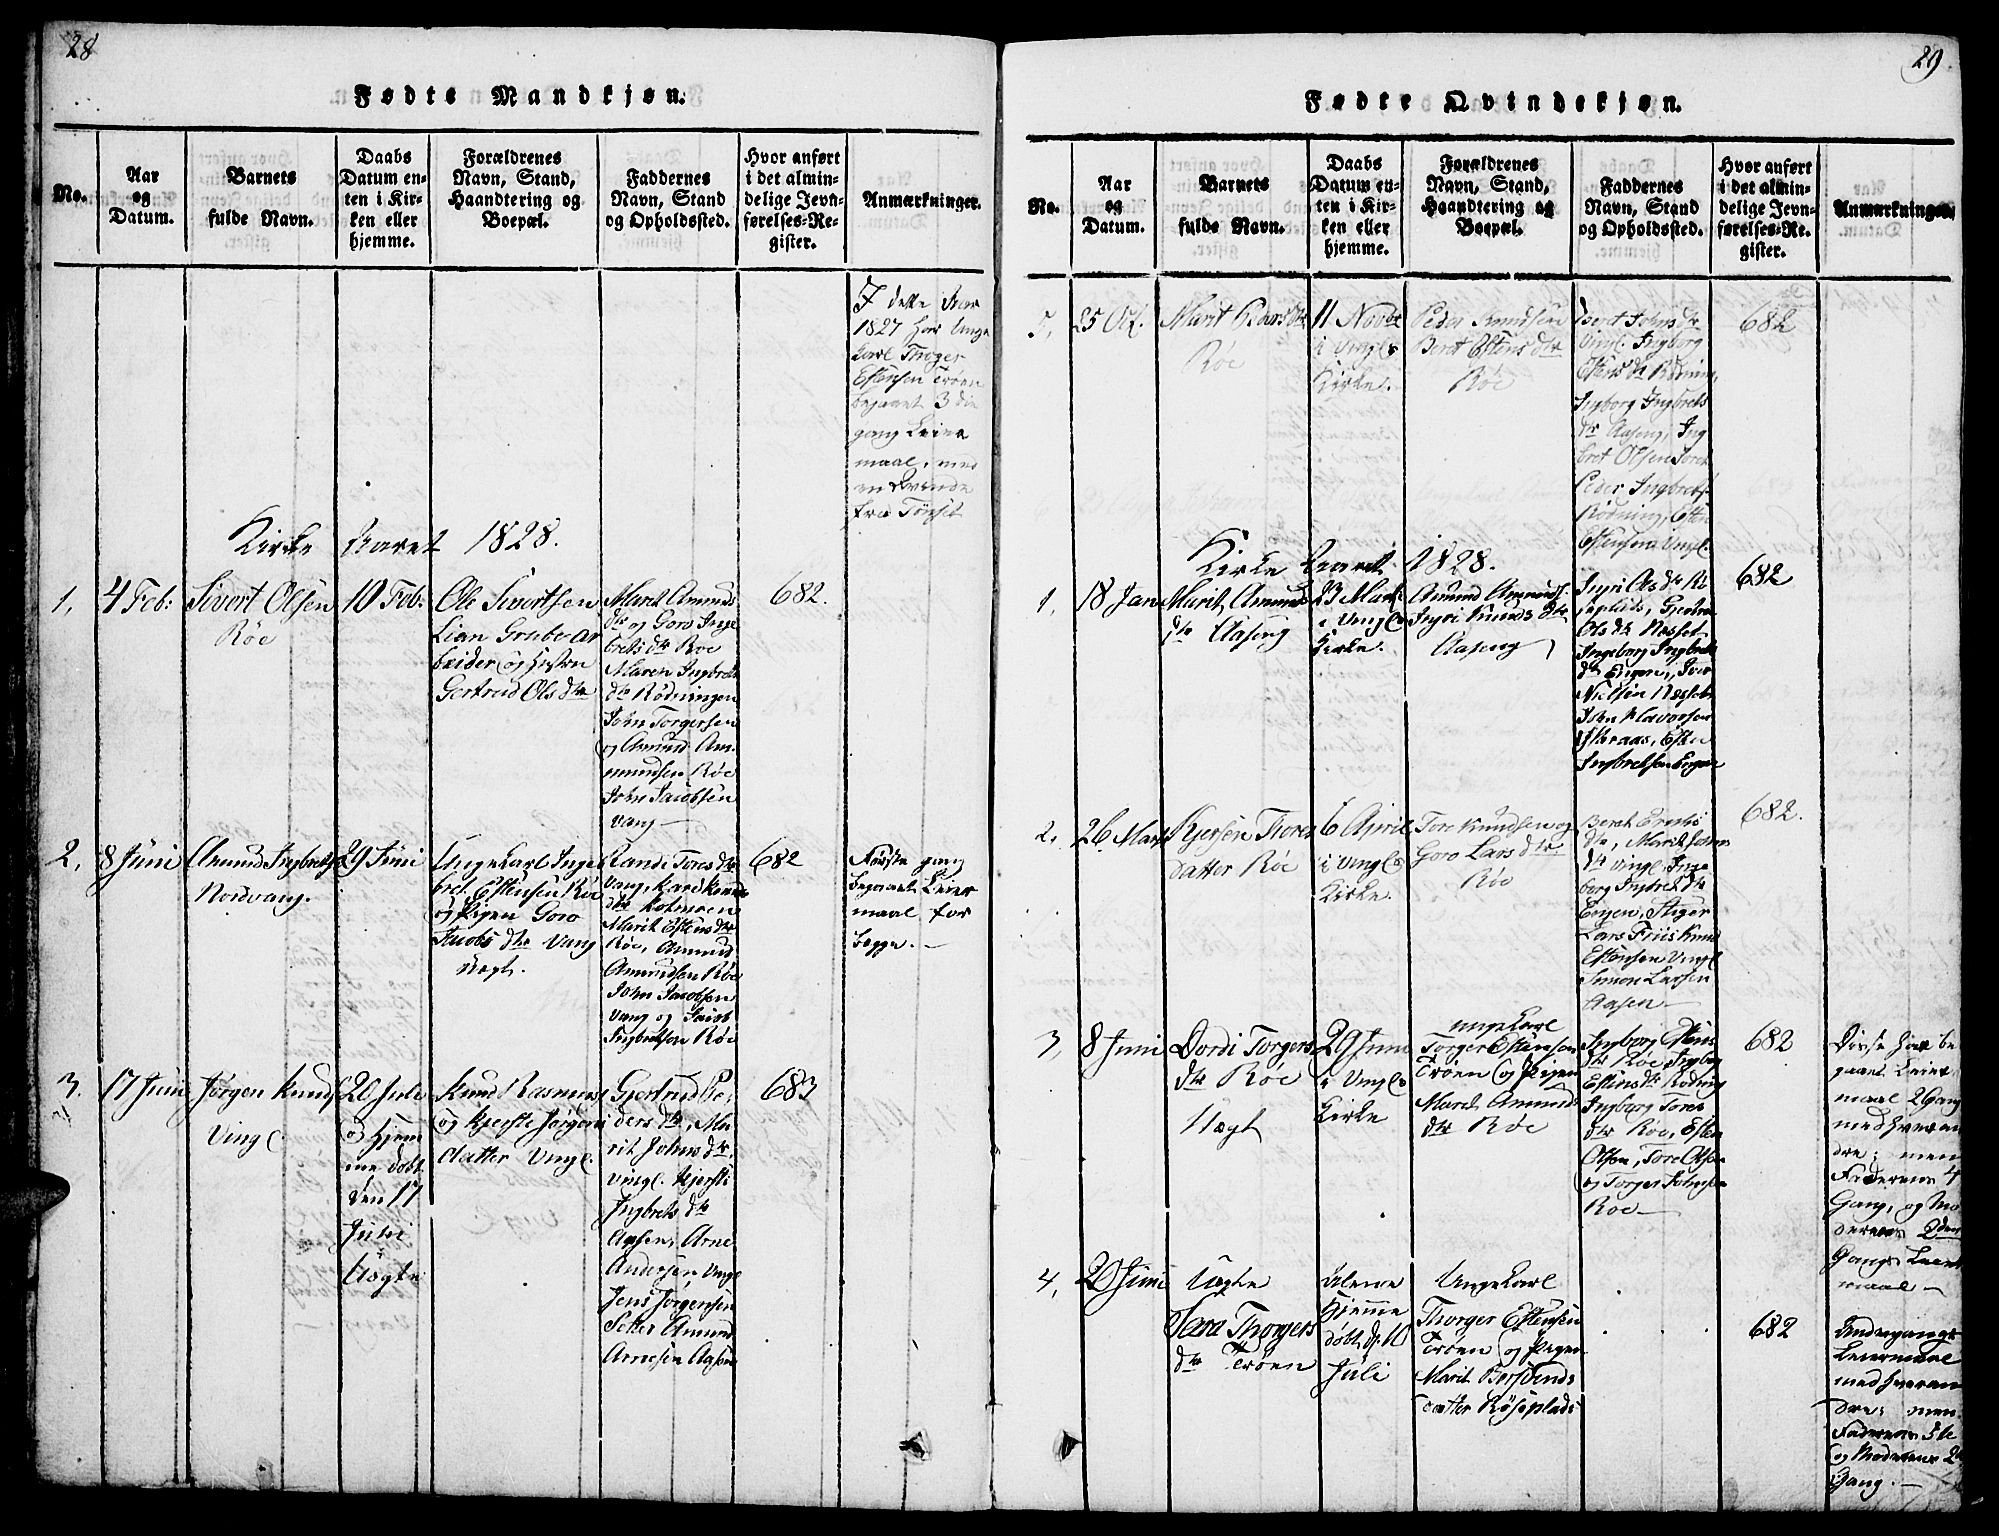 28
Fødte Mandkjøn.
No.
Aar
og
Datum.
Barnets
fulde Navn.
Daabs
Datum en-
ten i Kir-
ken eller
hjemme.
Forældrenes
Navn, Stand,
Haandtering og
Boepæl.
Faddernes
Navn, Stand
og Opholdssted.
Hvor anført
i det almin-
delige Jevn-
førelses-Re-
gister.
Anmærkninger.
I dette Aar
1827 har Unge
Karl Thoger
Estensen Trøen
begaaet 3die
gang Leier
maal, med
en Qvinde
fra Tønset
Kirke Aaret 1828.
1,
4 Feb:
Sivert Olsen
Røe
10 Feb:
Ole Sivertsen
Lian Grubear
beider og Hustru
Gertrud Ols dtr
Marit Amunds
dtr og Goro Inge
brets dtr Roe
Maren Ingbrets
dtr Rødningen
John Torgersen
og Amund Am-
mundsen Røe
John Jacobsen
Vang
682.
2,
8 Juni
Amund Ingbrets
Nordvang.
29 Juni
Ungekarl Inge
bret Estensen Røe
og Pigen Goro
Jacobs dtr Vang
Uægt.
Randi Tores dtr
Vang, Kari Knuds
dtr Kolmoen
Marit Estens dtr
Røe, Amund
Amundsen Røe
John Jacobsen
Vang og Jacob
Ingbretsen Røe
682
Første gang
begaaet Leier
maal for
begge.
3.
17 Juni
Jørgen Knuds
Vingl.
20 Julii
og Hjem
me døbt
den 17
Juni
Uægte
Knud Rasmus
og Kjerste Jørgens
datter Vingl.
Gjertrud Pe-
ders dtr, Ma
rit Johns dtr,
Vingl. Kjersti
Ingbrets dtr
Aasen, Arne
Andersen Vingl
Jens Jørgensen
Amund
Arnesen Aasen
683
29
Fødte Qvindekjøn.
No.
Aar
og
Datum.
Barnets
fulde Navn.
Daabs
Datum en-
ten i Kir-
ken eller
hjemme.
Forældrenes
Navn, Stand,
Haandtering og
Boepæl.
Faddernes
Navn, Stand
og Opholdssted.
Hvor anført
i det almin-
delige Jevn-
førelses-Re-
gister.
Anmærkninger.
5,
25 Oct.
Marit Peders dtr
Røe
11 Novbr
i Vingl.
Kirke.
Peder Knudsen
Beret Estens dtr
Røe
Beret Johns dtr
Vingl. Ingborg
Estens dtr Rødnin,
Ingborg Ingbrets
dtr Aaseng, Ing
bret Olsen
Peder Ingbrets.
Rødning, Esten
Estensen Vingl.
682
Kirke Aaret 1828.
1,
18 Jan
Marit Amunds
dtr Aaseng
23 Mart
i Vingl.
Kirke.
Amund Amunds.
Ingri Knuds dtr
Aaseng
Ingri Ols dtr Rø
seplads,
Ols dtr Næsset
Ingeborg Ingbrets
dtr Engen, Iver
Nielsen Næsset
John
Esten
Ingbretsen Engen
682
2.
26 Mars
Kjersten Tores
datter Røe
6 April
i Vingl.
Kirke.
Tore Knudsen og
Goro Lars dtr
Røe
Beret
dtr, Marit Johns
dtr Vingl. Inge
borg Ingbrets dtr
Engen, Stiger
Lars Friis Knud
Estensen Vingl
Simon Larsen
Aasen
682.
3,
8 Juni
Dordi Torgers
dtr Røe
Uægt
29 Juni
i Vingl.
Kirke
Ungekarl
Torger Estensen
Trøen og Pigen
Marit Amunds
dtr Røe
Ingborg Estens
dtr Røe Ingborg
Estens dtr Rødning
Ingborg Tores
dtr Røe, Esten
Olsen, Tore Olsen
og Torger Johnsen
Roe
682
Disse har be
gaaet Leier
maal 2 Gang
med hveran
dre; men
Faderens 4
Gang, og Mo
derens 2den
Gangs Leier
maal
4,
20 Juni
Uægte
Sara Thorgers
dtr Trøen
alene
Hjemme
døbt d. 10
Juli
Ungekarl
Thorger Estensen
Trøen og Pigen
Marit
datter Røseplads
682
Andengangs
Leiermaal
med hveran
dre; men
Faderens 5te
og Moderens 2de
Gang.